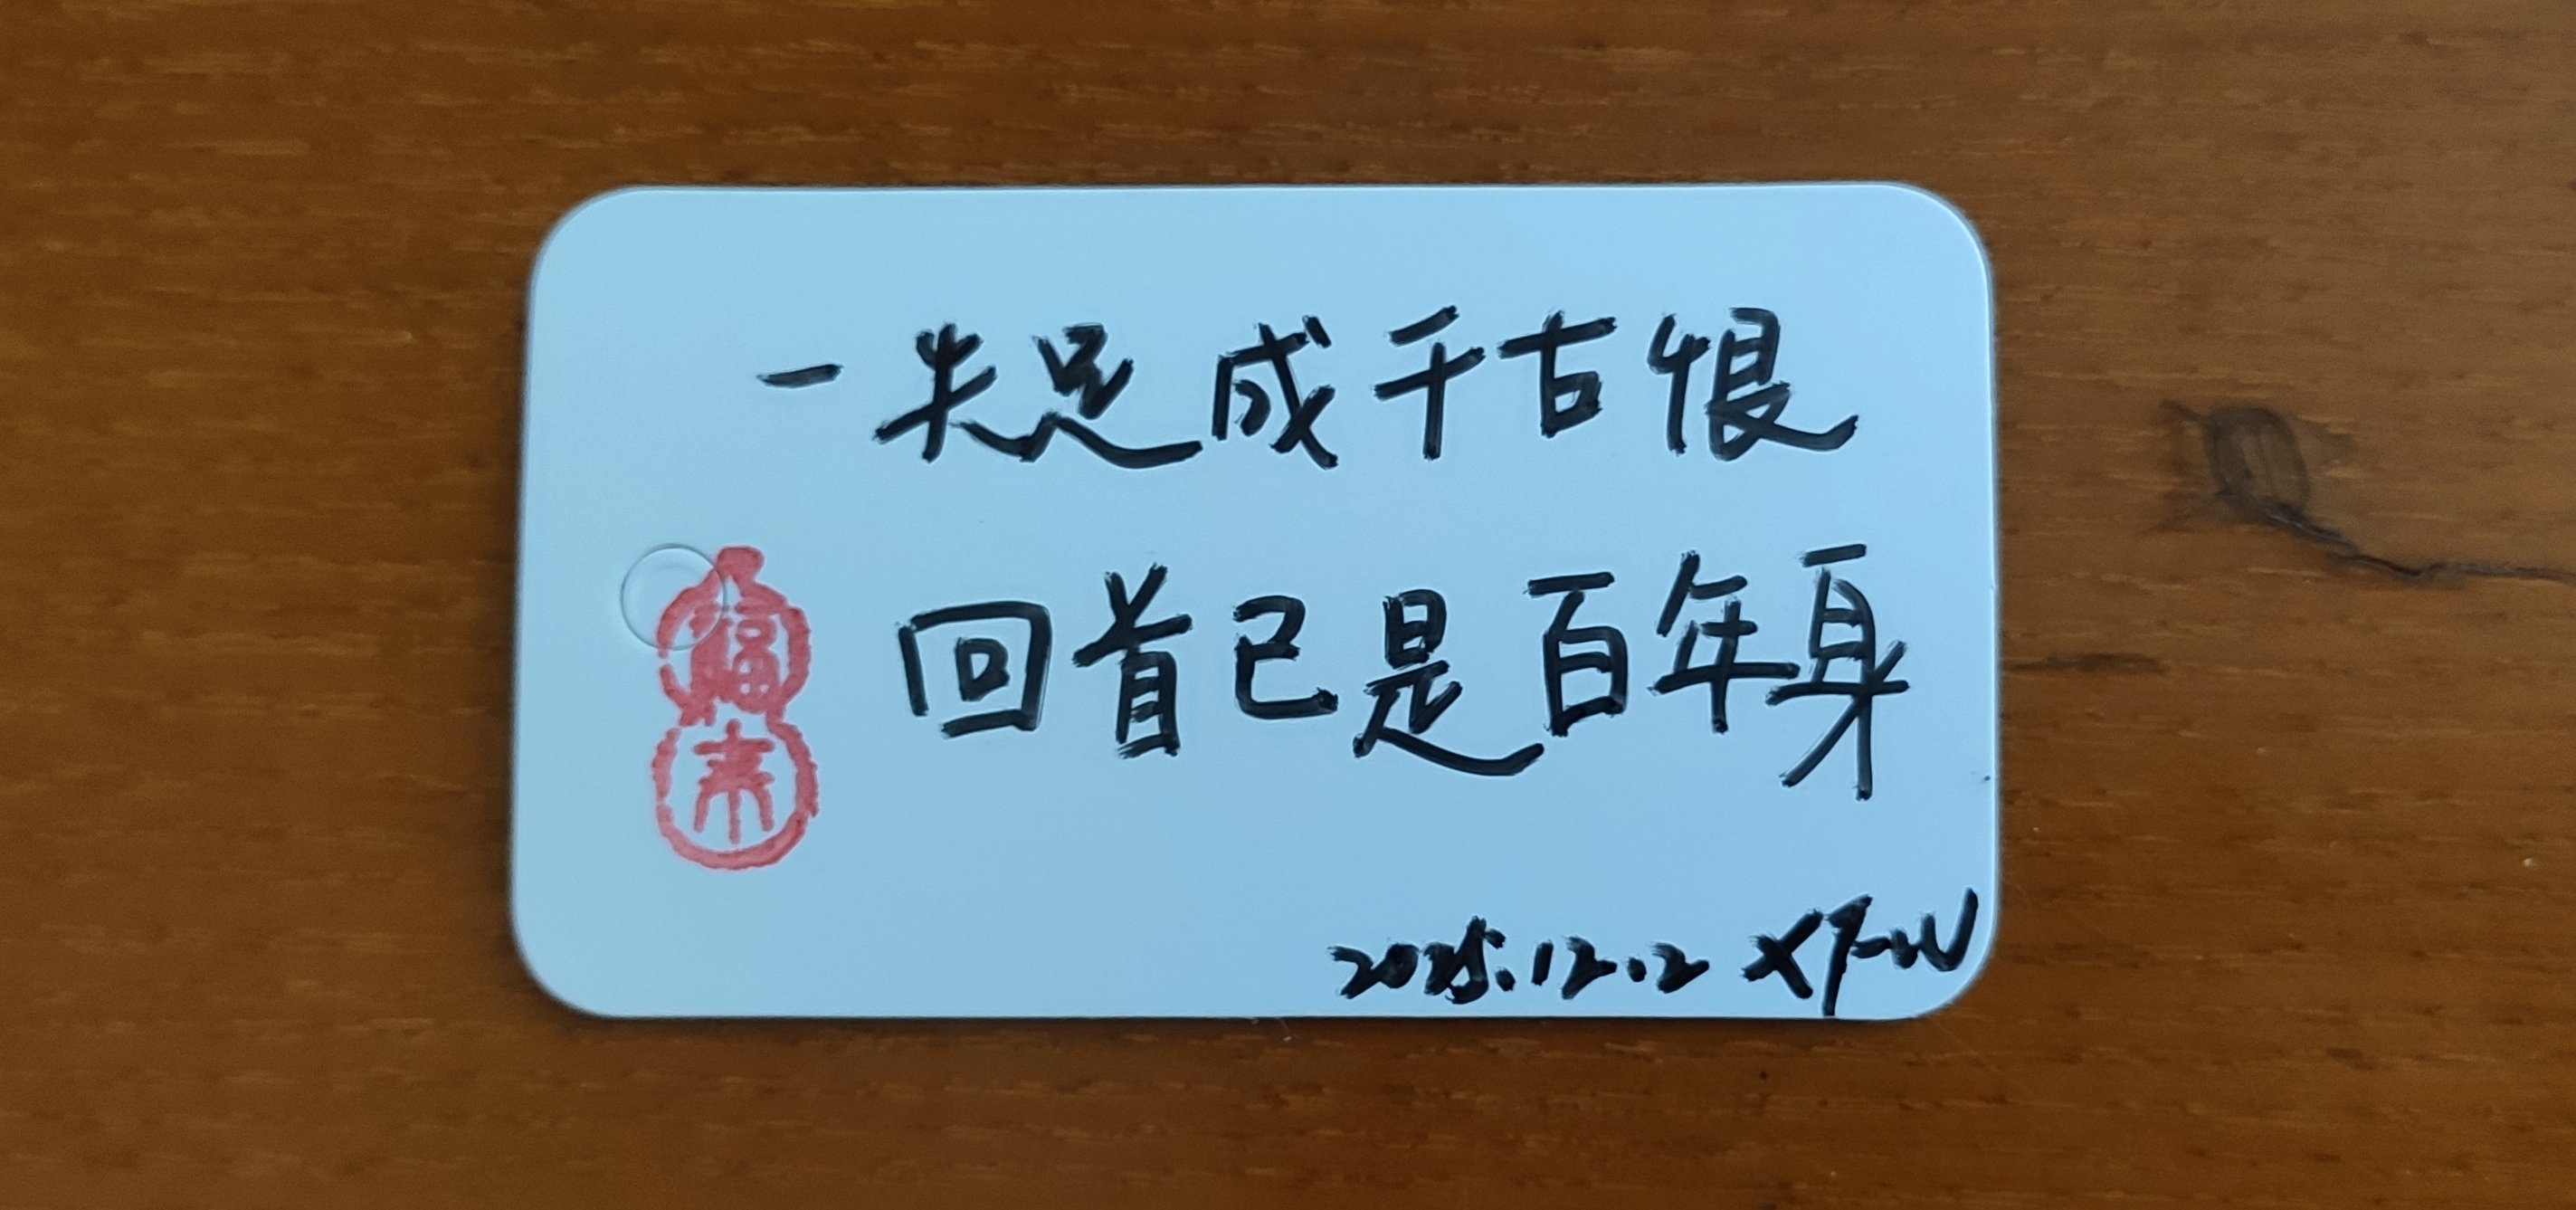 一失足成千古恨
回首已是百年身
福
来
2025.12.2 XFW